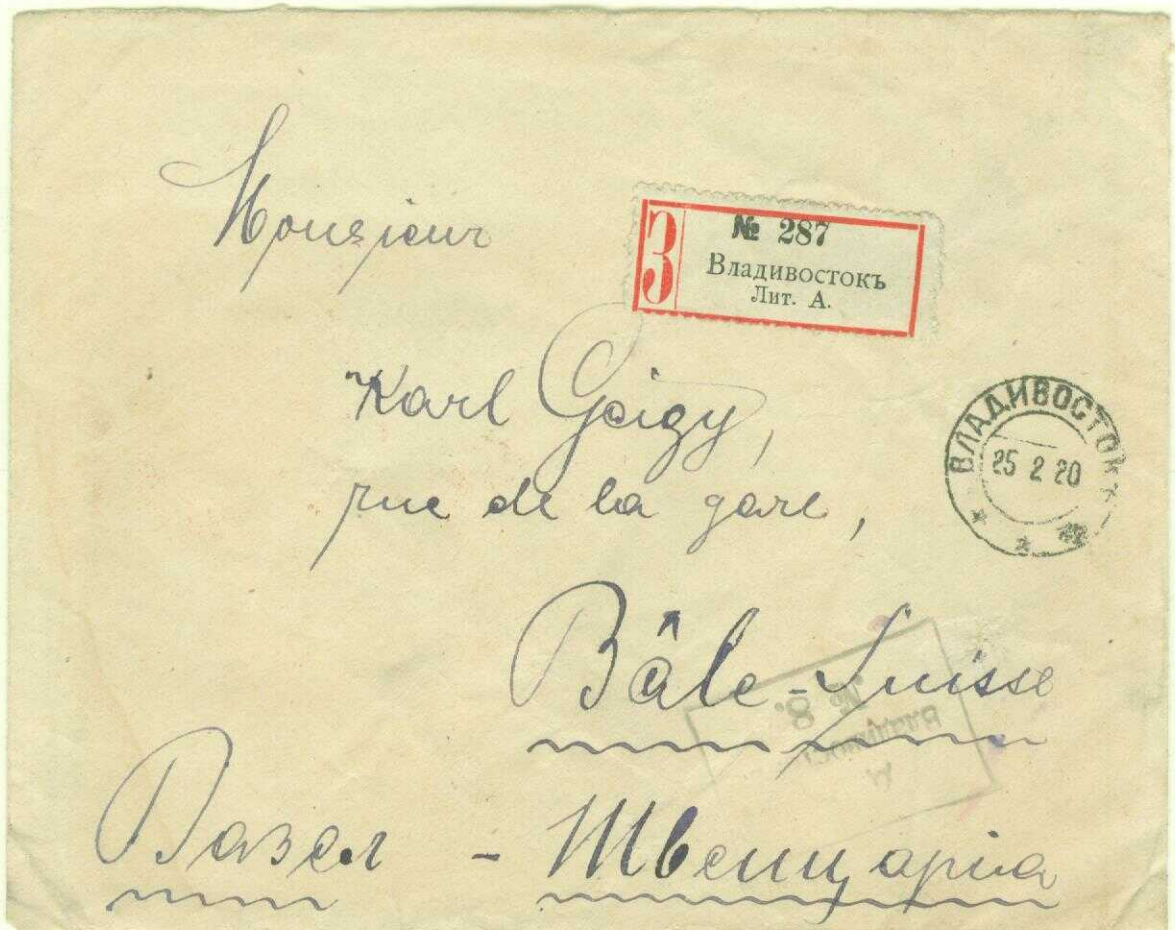 Monsieur
З
№ 287
Владивостокъ
Лит. А.
Karl Geigy,
rue de la gare,
ВЛАДИВОСТОКЪ
25 2 20
Bâle - Suisse
№ 8.
Базел - Швейцарiа